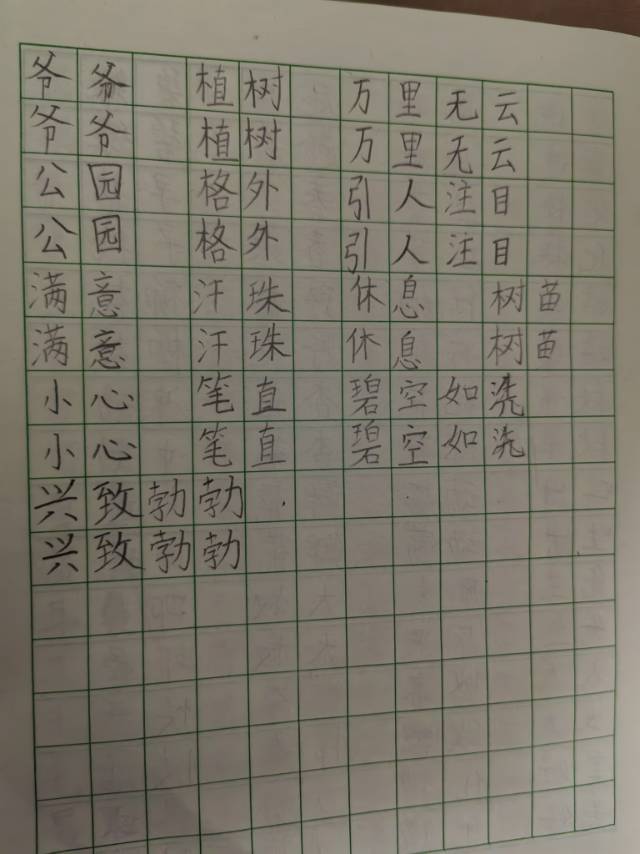 爷爷 植树 万里无云
爷爷 植树 万里无云
公园 格外 引人注目
公园 格外 引人注目
满意 汗珠 休息 树苗
满意 汗珠 休息 树苗
小心 笔直 碧空如洗
小心 笔直 碧空如洗
兴致勃勃
兴致勃勃